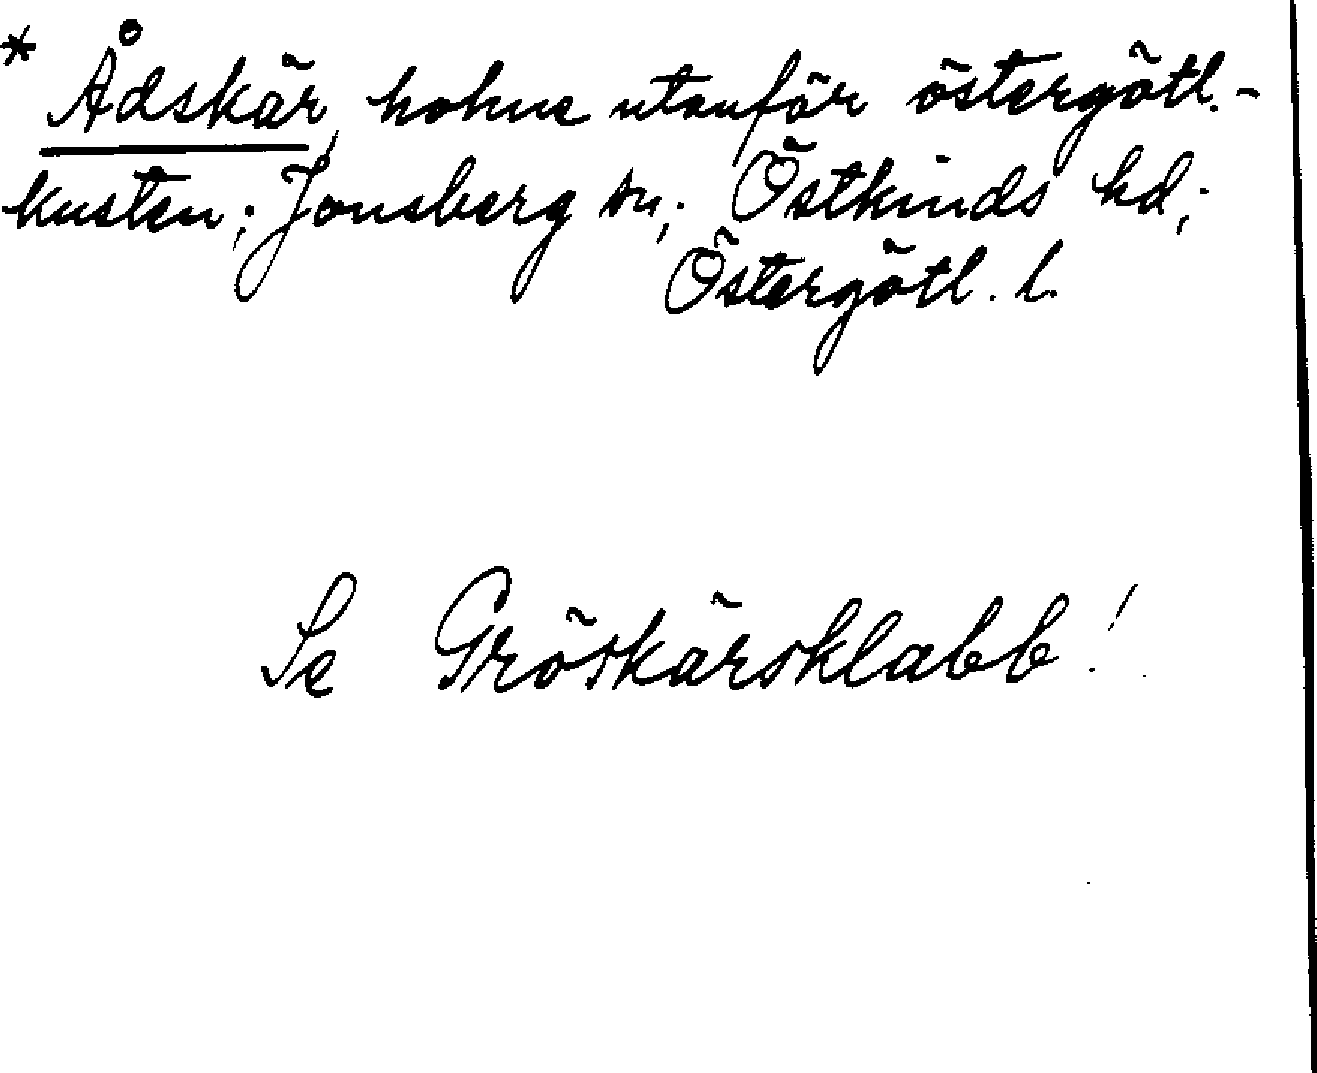 * Ådskär, holme utanför östergötl.-
kusten; Jonsberg sn; Östkinds hd;
Östergötl. l.
Se Gröskärsklabb!